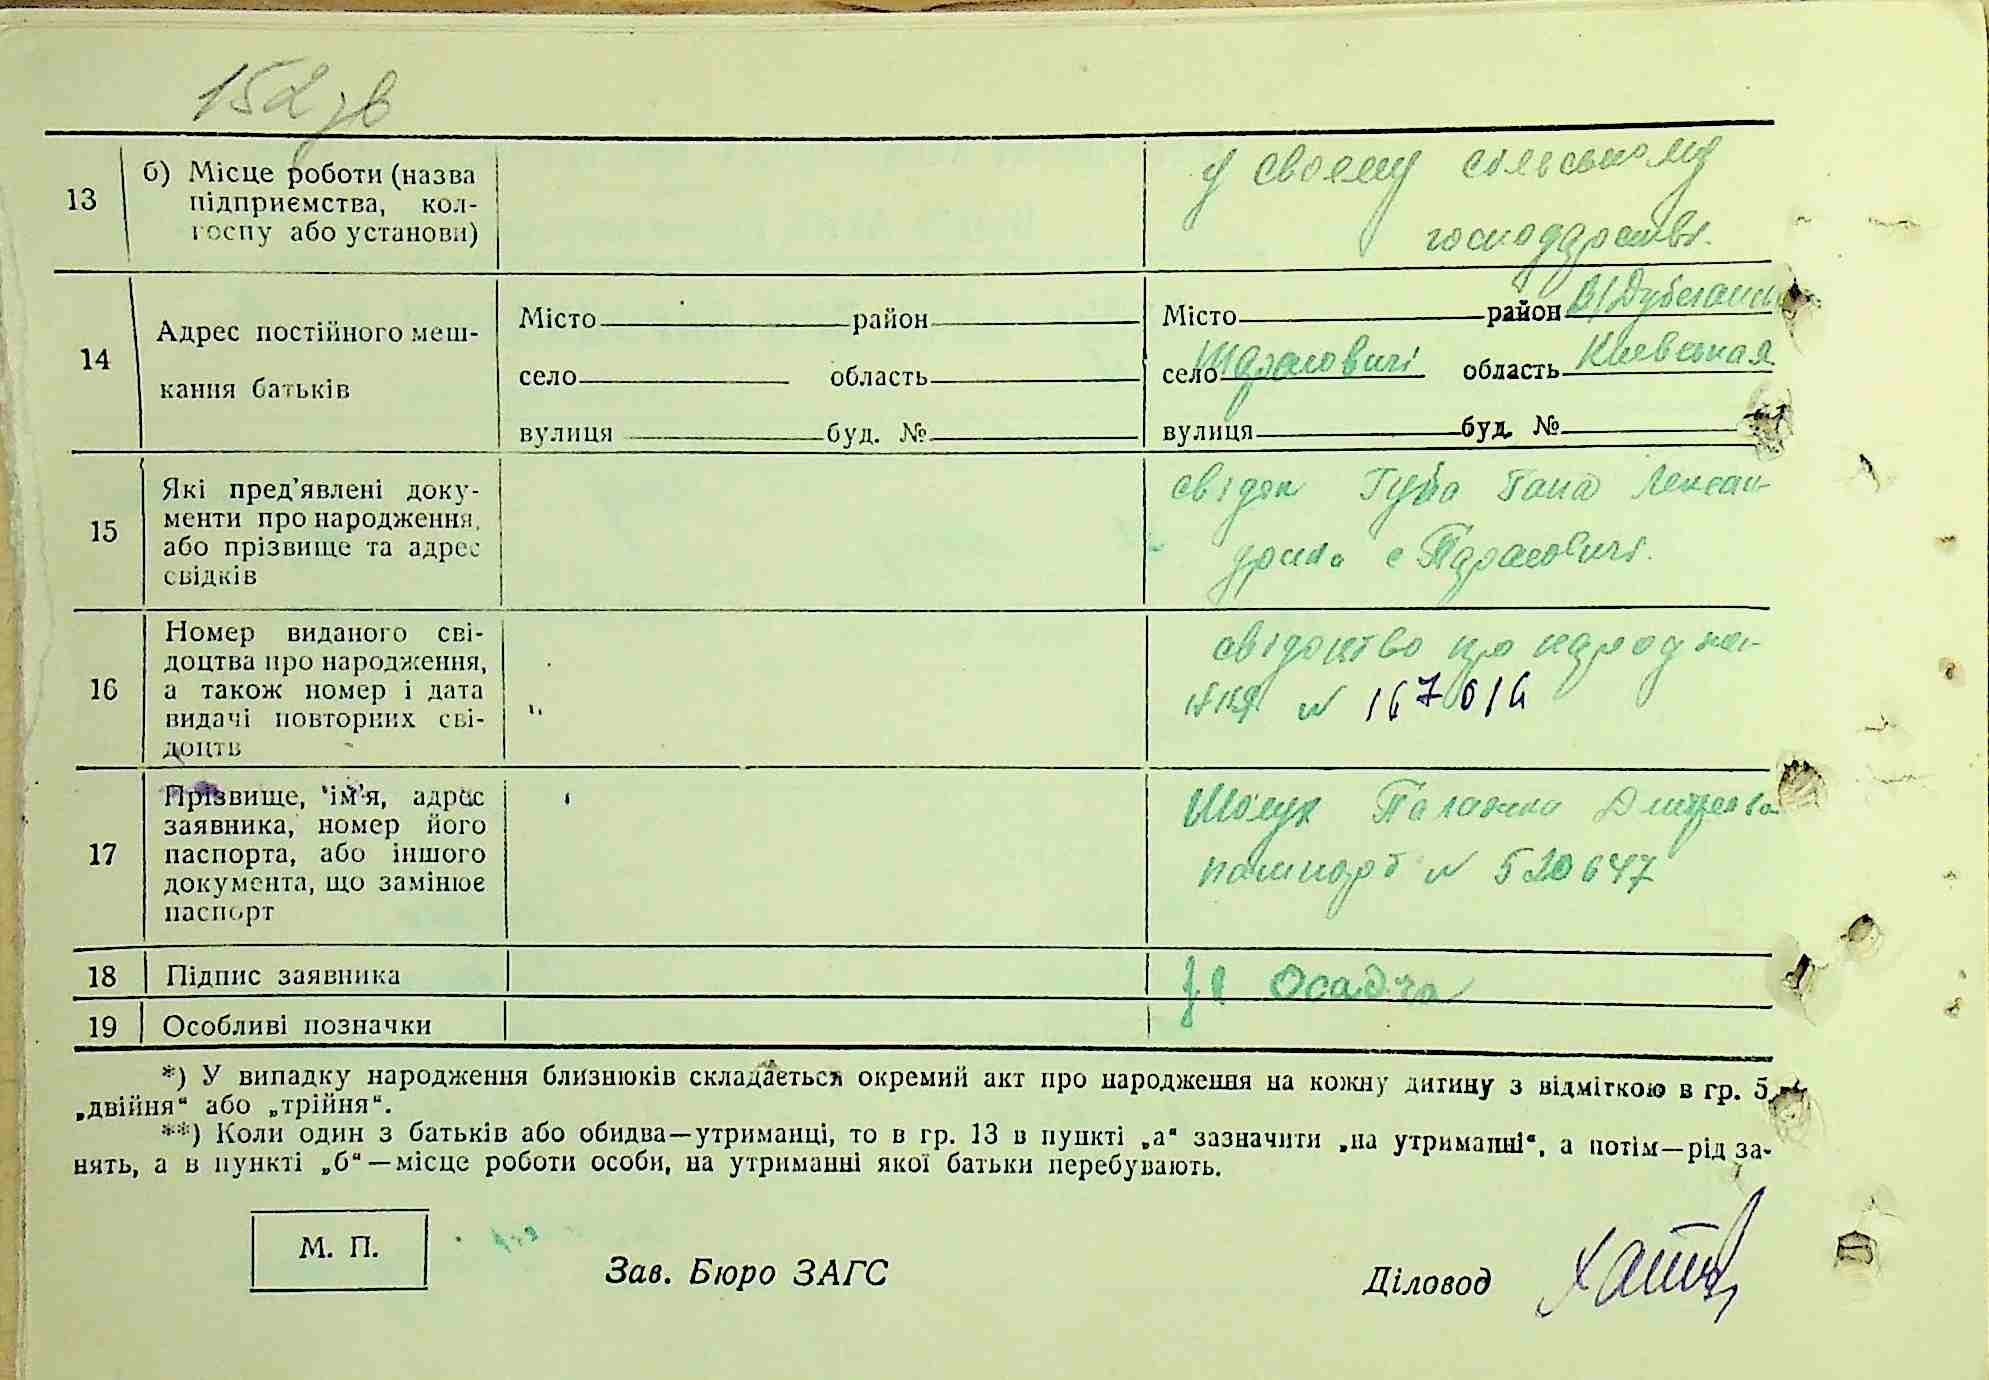 152 зв
13 б) Місце роботи (назва підприємства, колгоспу або установи)
у своему сільському
господарстві.
14 Адрес постійного мешкання батьків
Місто район
село область
вулиця буд. №
Місто район В/Дубечан
село Тарасовичі область Киевськая
вулиця буд. №
15 Які пред'явлені документи про народження, або прізвище та адрес свідків
свідок Губа Гана Лексан-
дрина с Тарасовичі.
16 Номер виданого свідоцтва про народження, а також номер і дата видачі повторних свідоцтв
свідоцтво про народже-
ння № 167014
17 Прізвище, ім'я, адрес заявника, номер його паспорта, або іншого документа, що замінює паспорт
Палажка Дмитрова
пашпорт № 520647
18 Підпис заявника
Осадча
19 Особливі позначки
*) У випадку народження близнюків складається окремий акт про народження на кожну дитину з відміткою в гр. 5
„двійня“ або „трійня“.
**) Коли один з батьків або обидва—утриманці, то в гр. 13 в пункті „а“ зазначити „на утриманні“, а потім—рід за-
нять, а в пункті „б“—місце роботи особи, на утриманні якої батьки перебувають.
М. П.
Зав. Бюро ЗАГС
Діловод